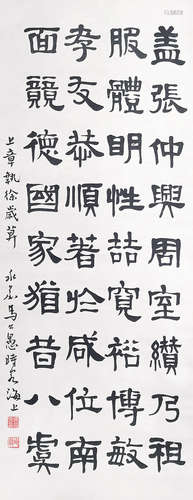 盖張仲興周室纘乃祖
服體明性喆寬裕博敏
孝友恭順著於咸位南
面競德國家猶昔八虞
上章執徐歲莫
永嘉馬公愚時客海上